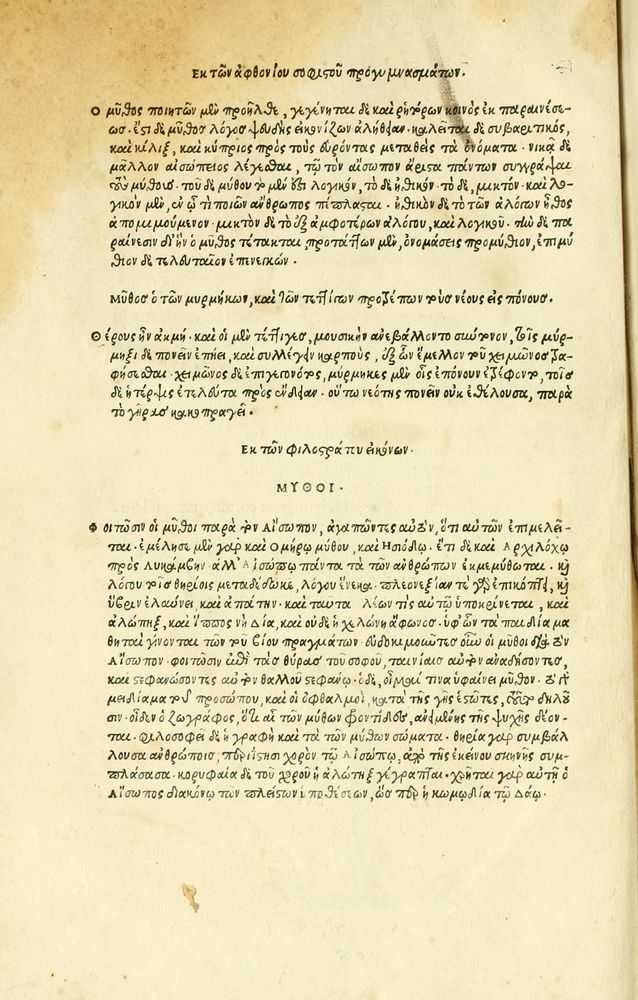 Εκ τῶν ἀφθονίου σοφιστοῦ προγυμνασμάτων.
Ο μῦθος ποιητῶν μὲν προῆλθε, γεγένηται δὲ καὶ ῥητόρων κοινὸς ἐκ παραινέσε-
ως. ἔστι δὲ μῦθος λόγος ψευδὴς εἰκονίζων ἀλήθειαν. καλεῖται δὲ συβαριτικός,
καὶ κίλιξ, καὶ κύπριος πρὸς τοὺς εὑρόντας μεταθεὶς τὰ ὀνόματα. νικᾷ δὲ
μᾶλλον αἰσώπειος λέγεσθαι, τῷ τὸν αἴσωπον ἄριστα πάντων συγγράψαι
τοὺς μύθους. τοῦ δὲ μύθου τὸ μέν ἐστι λογικόν, τὸ δὲ ἠθικόν. τὸ δὲ, μικτόν. καὶ λο-
γικὸν μὲν, ἐν ᾧ τὶ ποιῶν ἄνθρωπος πέπλασται. ἠθικὸν δὲ τὸ τῶν ἀλόγων ἦθος
ἀπομιμούμενον. μικτὸν δὲ τὸ ἐξ ἀμφοτέρων ἀλόγου, καὶ λογικοῦ. τὴν δὲ πα
ραίνεσιν δι' ἣν ὁ μῦθος τέτακται προτάττων μὲν, ὀνομάσεις προμύθιον, ἐπιμύ
θιον δὲ τελευταῖον ἐπενεικών.
Μῦθος ὁ τῶν μυρμήκων, καὶ τῶν τεττίγων προτρέπων τοὺς νέους εἰς πόνους.
Θ έρους ἦν ἀκμή. καὶ οἱ μὲν τέττιγες, μουσικὴν ἀνεβάλλοντο σύντονον, τοῖς μύρ-
μηξι δὲ πονεῖν ἐπῄει, καὶ συλλέγειν καρποὺς, ἐξ ὧν ἔμελλον τοῦ χειμῶνος τρα-
φήσεσθαι. χειμῶνος δὲ ἐπιγεγονότος, μύρμηκες μὲν οἷς ἐπόνουν ἐτρέφοντο, τοῖς
δὲ ἡ τέρψις ἐτελεύτα πρὸς ἔνδειαν. οὕτω νεότης πονεῖν οὐκ ἐθέλουσα, παρὰ
τὸ γῆρας κακοπραγεῖ.
Εκ τῶν φιλοστράτου εἰκόνων.
ΜΥΘΟΙ.
Φ οιτῶσιν οἱ μῦθοι παρὰ τὸν Αἴσωπον, ἀγαπῶντες αὐτόν, ὅτι αὐτῶν ἐπιμελεῖ-
ται. ἐμέλησε μὲν γὰρ καὶ Ομήρῳ μύθου, καὶ Ησιόδῳ. ἔτι δὲ καὶ Αρχιλόχῳ
πρὸς Λυκάμβην. ἀλλ' Αἰσώπῳ πάντα τὰ τῶν ἀνθρώπων ἐκμεμύθωται. καὶ
λόγου τοῖς θηρίοις μεταδέδωκε, λόγου ἕνεκα. πλεονεξίαν τε γὰρ ἐπικόπτει, καὶ
ὕβριν ἐλαύνει, καὶ ἀπάτην. καὶ ταῦτα λέων τὶς αὐτῷ ὑποκρίνεται, καὶ
ἀλώπηξ, καὶ ἵππος νὴ Δία, καὶ οὐδὲ ἡ χελώνη ἄφωνος. ὑφ' ὧν τὰ παιδία μα
θηταὶ γίνονται τῶν τοῦ βίου πραγμάτων. εὐδοκιμοῦντες οὖν οἱ μῦθοι διὰ τὸν
Αἴσωπον. φοιτῶσιν ἐπὶ τὰς θύρας τοῦ σοφοῦ, ταινίαις αὐτὸν ἀναδήσοντες,
καὶ στεφανώσοντες αὐτὸν θαλλοῦ στεφάνῳ. ὁ δὲ, οἶμαί τινα ὑφαίνει μῦθον. τὸ γὰρ
μειδίαμα τοῦ προσώπου, καὶ οἱ ὀφθαλμοὶ, κατὰ τῆς γῆς ἑστῶτες, τοῦτο δηλοῦ
σιν. οἶδεν ὁ ζωγράφος, ὅτι αἱ τῶν μύθων φροντίδες, ἀνειμένης τῆς ψυχῆς δέον-
ται. φιλοσοφεῖ δὲ ἡ γραφὴ καὶ τὰ τῶν μύθων σώματα. θηρία γὰρ συμβάλ
λουσα ἀνθρώποις, περιίστησι χορὸν τῷ Αἰσώπῳ, ἀπὸ τῆς ἐκείνου σκηνῆς συμ-
πλάσασα. κορυφαία δὲ τοῦ χοροῦ ἡ ἀλώπηξ γέγραπται. χρῆται γὰρ αὐτῇ ὁ
Αἴσωπος διακόνῳ τῶν πλείστων ὑποθέσεων, ὥσπερ ἡ κωμῳδία τῷ Δάῳ.